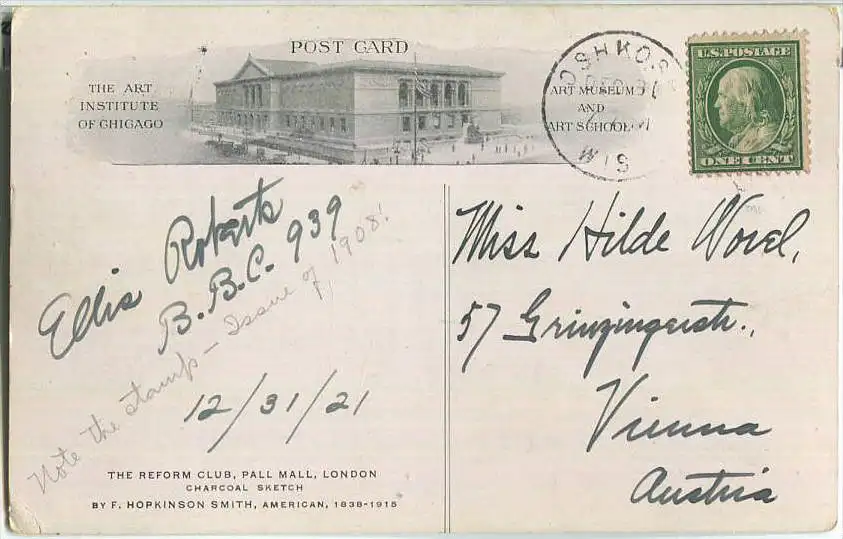 POST CARD
THE ART
INSTITUTE
OF CHICAGO
ART MUSEUM
AND
ART SCHOOL
OSHKOSH
DEC 31
WIS
U.S. POSTAGE
ONE CENT
Ellis Roberts
B.B.C. 939
Note the stamp - Issue of 1908!
12/31/21
THE REFORM CLUB, PALL MALL, LONDON
CHARCOAL SKETCH
BY F. HOPKINSON SMITH, AMERICAN, 1838-1915
Miss Hilde Worel,
57 Grinzingerstr.,
Vienna
Austria